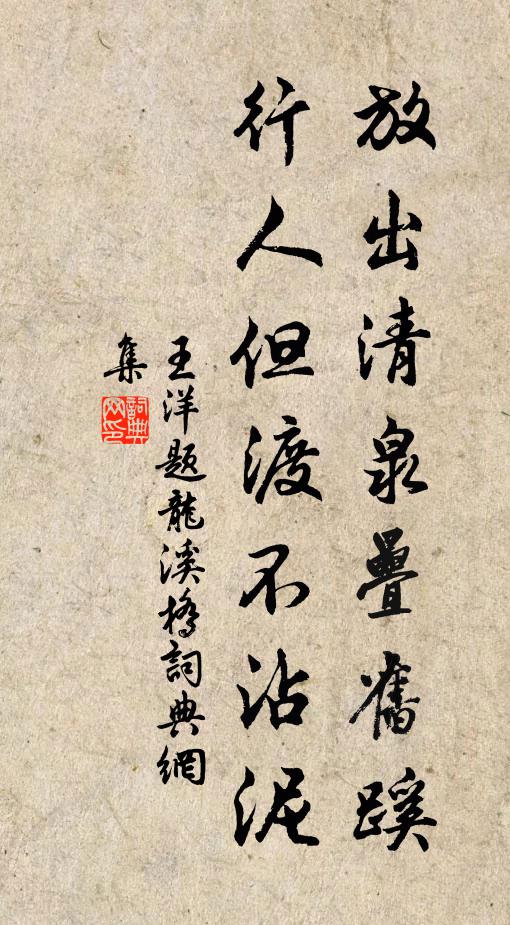 放出清泉疊舊蹊
行人但渡不沾泥
王洋題龍溪橋詞典網
集
詞典
网印